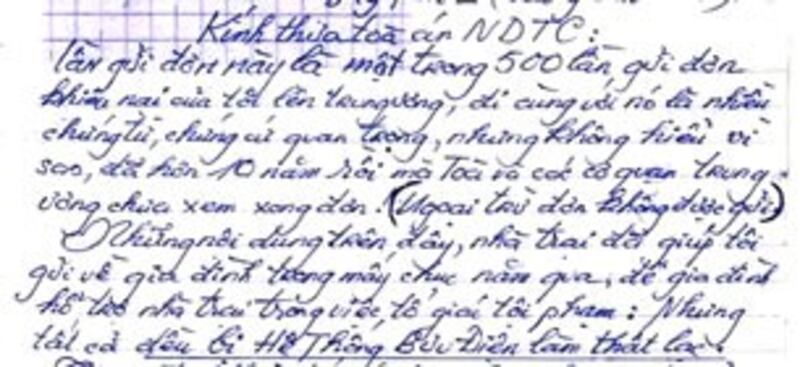 Kính thưa toà án NDTC:
lần gửi đơn này là một trong 500 lần, gửi đơn
khiếu nại của tôi lên trung ương, đi cùng với nó là nhiều
chứng từ, chứng cứ quan trọng, nhưng không hiểu vì
sao, đã hơn 10 năm rồi mà Toà và các cơ quan trung
ương chưa xem xong đơn. (Ngoại trừ đơn không được gửi)
Những nội dung trên đây, nhà trại đã giúp tôi
gửi về gia đình trong mấy chục năm qua, để gia đình
hỗ trợ nhà trại trong việc, tố giác tội phạm: Nhưng
tất cả đều bị Hệ Thống Bưu Điện làm thất lạc.